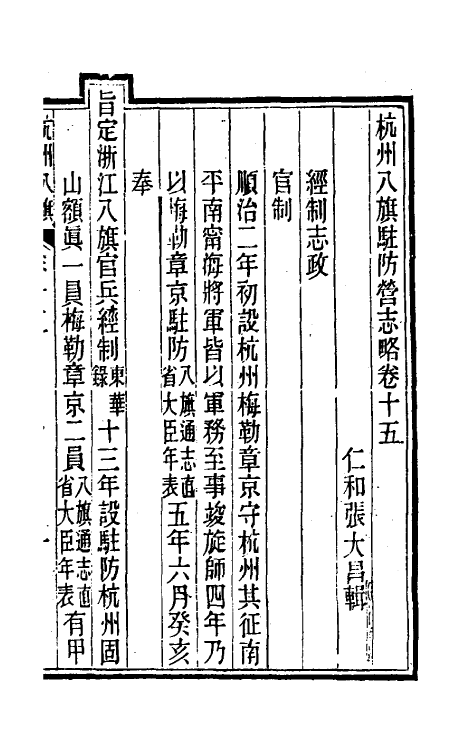 杭州八旗駐防營志略卷十五
仁和張大昌輯
經制志政
官制
順治二年初設杭州梅勒章京守杭州其征南
平南甯海將軍皆以軍務至事竣旋師四年乃
以梅勒章京駐防八旗通志直省大臣年表五年六月癸亥
奉
旨定浙江八旗官兵經制東華錄十三年設駐防杭州固
山額眞一員梅勒章京二員八旗通志直省大臣年表有甲
杭州八旗